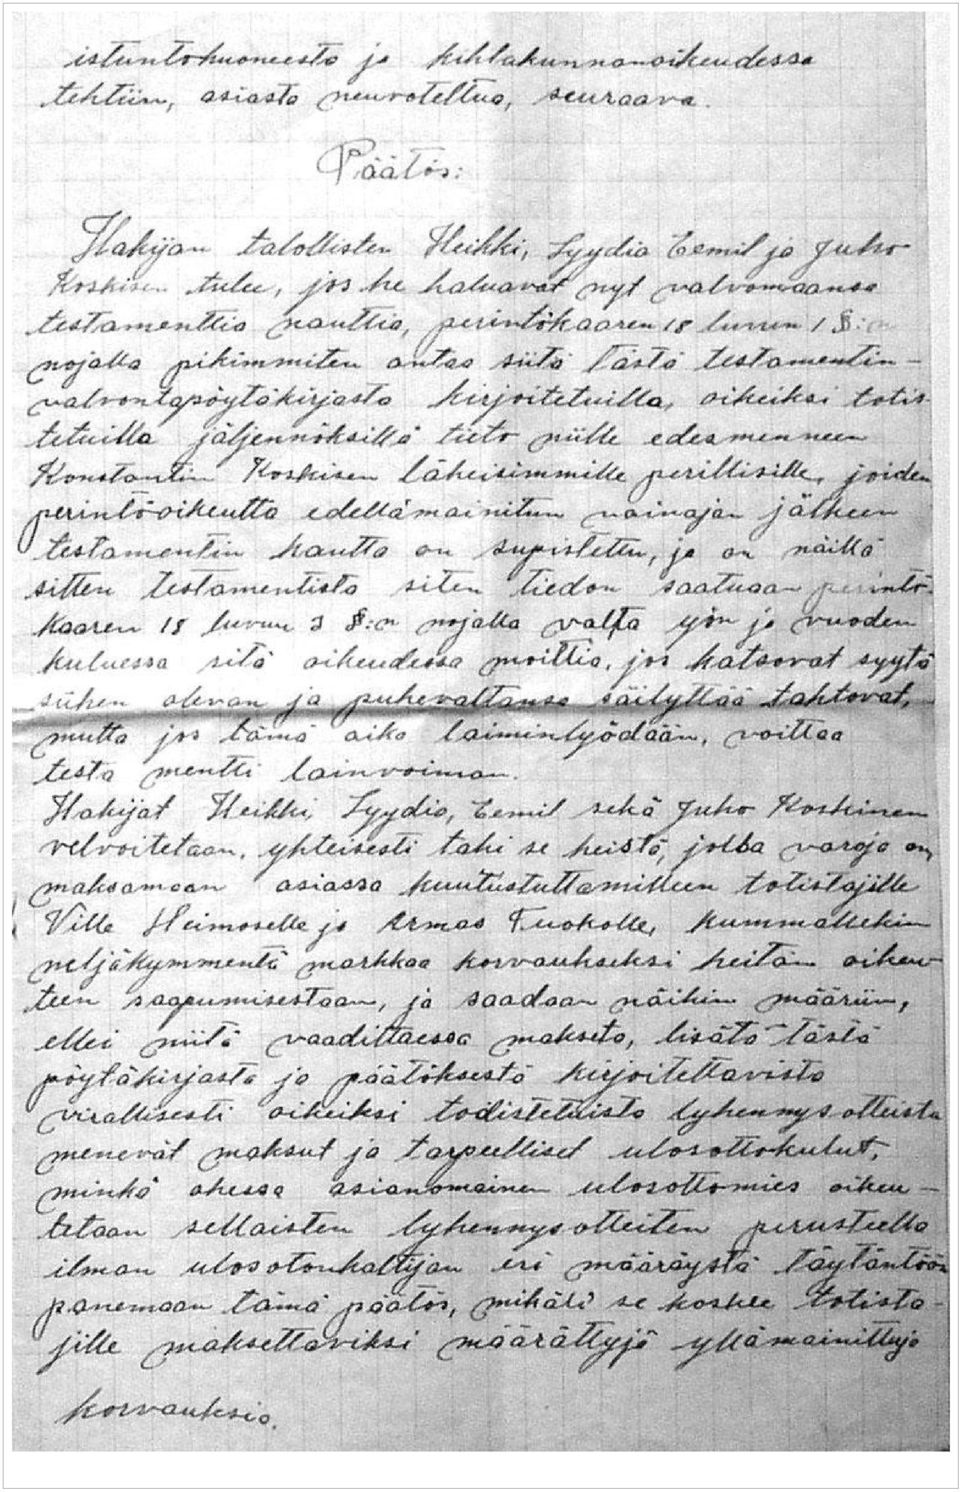 istuntohuoneesta ja kihlakunnanoikeudessa
tehtiin, asiasta neuvoteltua, seuraava.
Päätös:
Hakijan talollisten Heikki, Lyydia Eemil ja Juho
Koskisen tulee, jos he haluavat nyt valvomaansa
testamenttia nauttia, perintökaaren 18 luvun 1 §:n
nojalla pikimmiten antaa siitä tästä testamentin-
valvontapöytäkirjasta kirjoitetuilla, oikeiksi totis-
tetuilla jäljennöksillä tieto niille edesmenneen
Konstantin Koskisen läheisimmille perillisille, joiden
perintöoikeutta edellämainitun vainajan jälkeen
testamentin kautta on supistettu, ja on näillä
sitten testamentista siten tiedon saatuaan perintö-
kaaren 18 luvun 3 §:n nojalla valta yön ja vuoden
kuluessa sitä oikeudessa moittia, jos katsovat syytä
siihen olevan ja puhevaltansa säilyttää tahtovat,
mutta jos tämä aika laiminlyödään, voittaa
testa mentti lainvoiman.
Hakijat Heikki, Lyydia, Eemil sekä Juho Koskinen
velvoitetaan, yhteisesti tahi se heistä, jolla varoja on,
maksamaan asiassa kuulustuttamilleen totistajille
Ville Heimoselle ja Armas Tuokolle, kummallekin
neljäkymmentä markkaa korvaukseksi heitän oikeu-
teen saapumisestaan, ja saadaan näihin määriin,
ellei niitä vaadittaessa makseta, lisätä tästä
pöytäkirjasta ja päätöksestä kirjoitettavista
virallisesti oikeiksi todistetuista lyhennysotteista
menevät maksut ja tarpeelliset ulosottokulut,
minkä ohessa asianomainen ulosottomies oikeu-
tetaan sellaisten lyhennysotteiten perusteella
ilman ulosotonhaltijan eri määräystä täytäntöön
panemaan tämä päätös, mikäli se koskee totista-
jille maksettaviksi määrättyjä yllämainittuja
korvauksia.